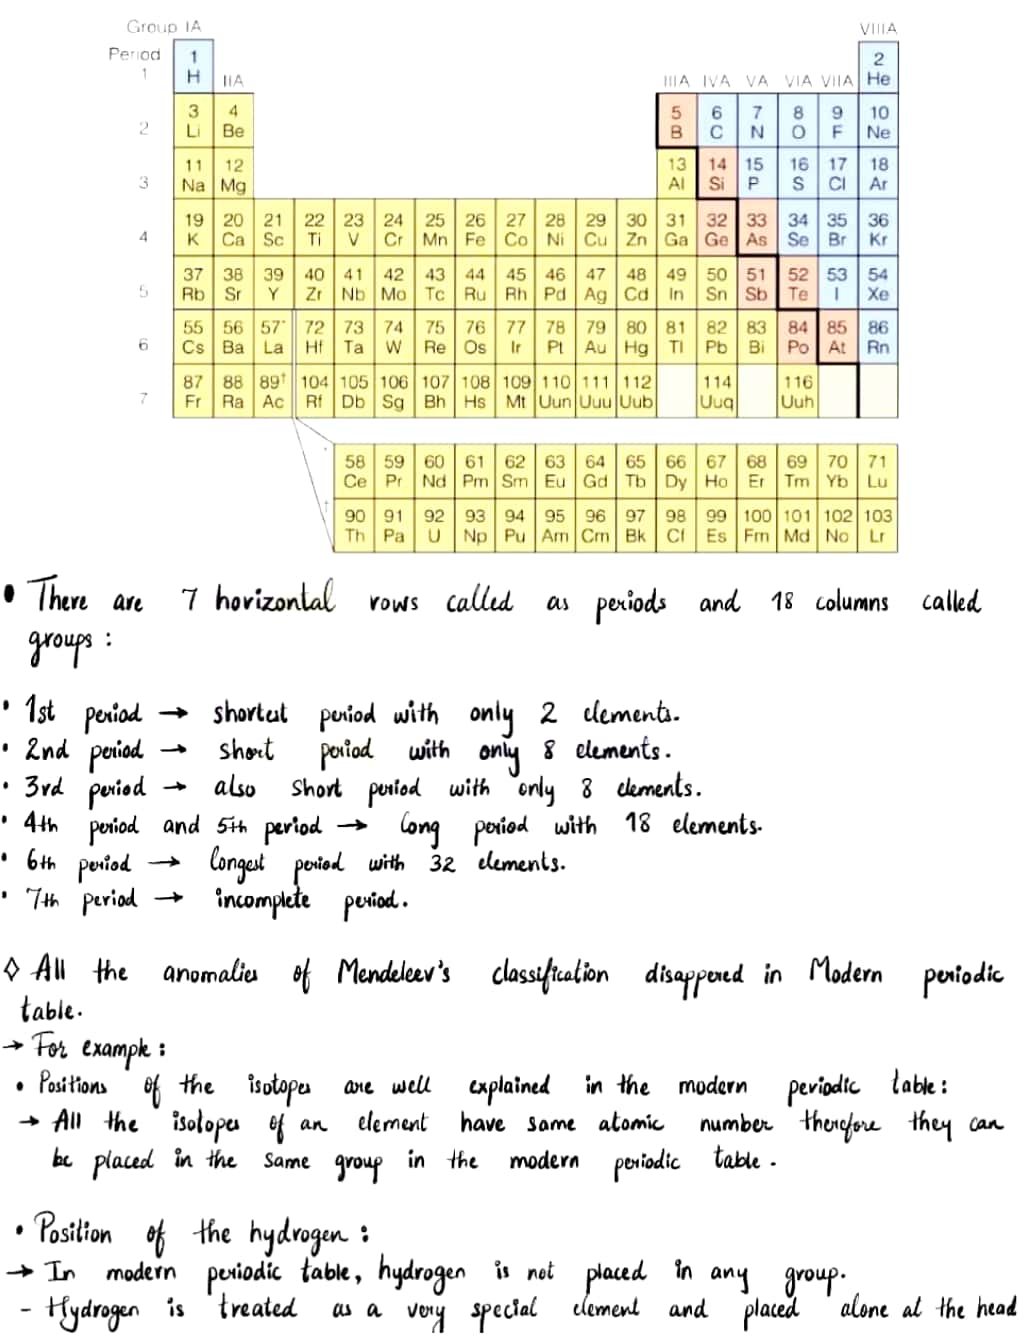 Group IA VIIIA
Period
1 1 2
H IIA IIIA IVA VA VIA VIIA He
3 4 5 6 7 8 9 10
2 Li Be B C N O F Ne
11 12 13 14 15 16 17 18
3 Na Mg Al Si P S Cl Ar
19 20 21 22 23 24 25 26 27 28 29 30 31 32 33 34 35 36
4 K Ca Sc Ti V Cr Mn Fe Co Ni Cu Zn Ga Ge As Se Br Kr
37 38 39 40 41 42 43 44 45 46 47 48 49 50 51 52 53 54
5 Rb Sr Y Zr Nb Mo Tc Ru Rh Pd Ag Cd In Sn Sb Te I Xe
55 56 57* 72 73 74 75 76 77 78 79 80 81 82 83 84 85 86
6 Cs Ba La Hf Ta W Re Os Ir Pt Au Hg Tl Pb Bi Po At Rn
87 88 89† 104 105 106 107 108 109 110 111 112 114 116
7 Fr Ra Ac Rf Db Sg Bh Hs Mt Uun Uuu Uub Uuq Uuh
* 58 59 60 61 62 63 64 65 66 67 68 69 70 71
Ce Pr Nd Pm Sm Eu Gd Tb Dy Ho Er Tm Yb Lu
† 90 91 92 93 94 95 96 97 98 99 100 101 102 103
Th Pa U Np Pu Am Cm Bk Cf Es Fm Md No Lr
• There are 7 horizontal rows called as periods and 18 columns called
groups :
• 1st period → shortest period with only 2 elements.
• 2nd period → short period with only 8 elements.
• 3rd period → also short period with only 8 elements.
• 4th period and 5th period → long period with 18 elements.
• 6th period → longest period with 32 elements.
• 7th period → incomplete period.
◊ All the anomalies of Mendeleev's classification disappered in Modern periodic
table.
→ For example :
• Positions of the isotopes are well explained in the modern periodic table :
→ All the isotopes of an element have same atomic number therefore they can
be placed in the same group in the modern periodic table.
• Position of the hydrogen :
→ In modern periodic table, hydrogen is not placed in any group.
- Hydrogen is treated as a very special element and placed alone at the head